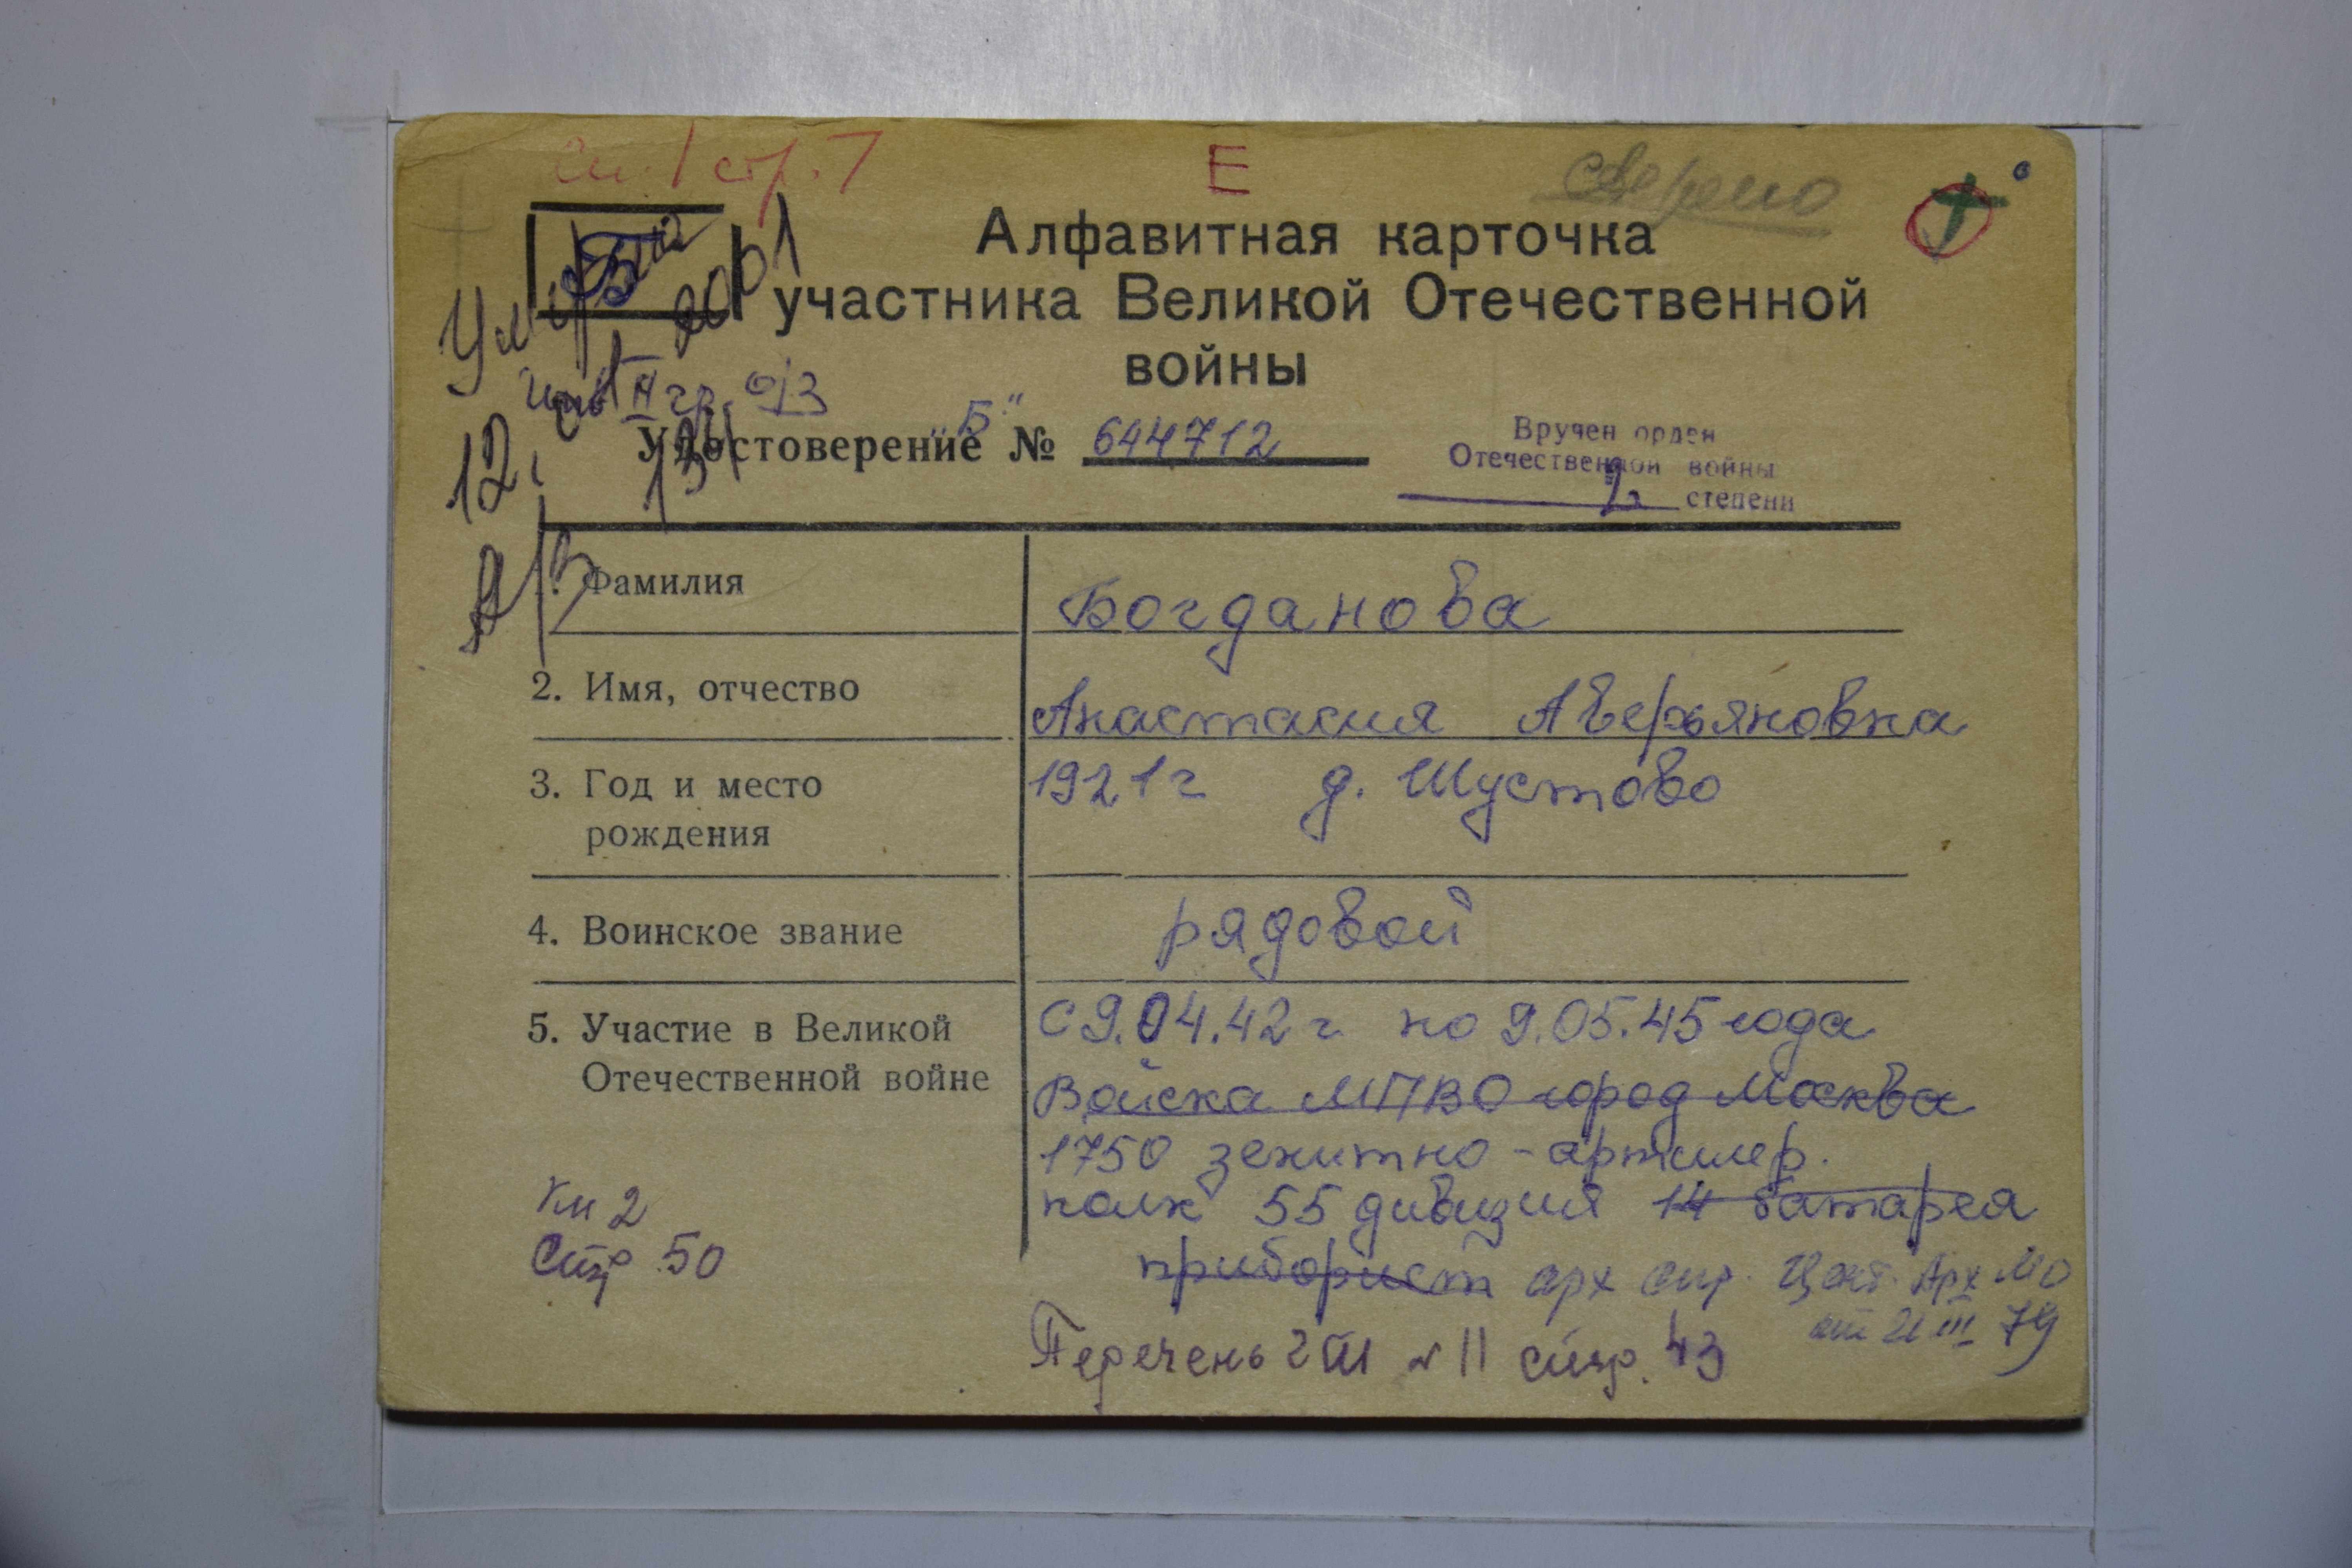 Сп. 1 стр. 7
Е
сверено
Алфавитная карточка
участника Великой Отечественной
войны
Умер
2001
II гр. о/з
"Б"
Удостоверение № 644712
12.
Вручен орден
Отечественной войны
2 степени
1. Фамилия Богданова
2. Имя, отчество Анастасия Аверьяновна
3. Год и место 1921 г д. Шустово
рождения
4. Воинское звание рядовой
5. Участие в Великой С 9.04.42 г. по 9.05.45 года
Отечественной войне Войска МПВО город Москва
1750 зенитно-артилер.
полк 55 дивизия 14 батарея
приборист арх спр. Цент. Арх МО
от 21 III 79
Кн 2
Стр 50
Перечень 2 ГШ № 11 стр. 43